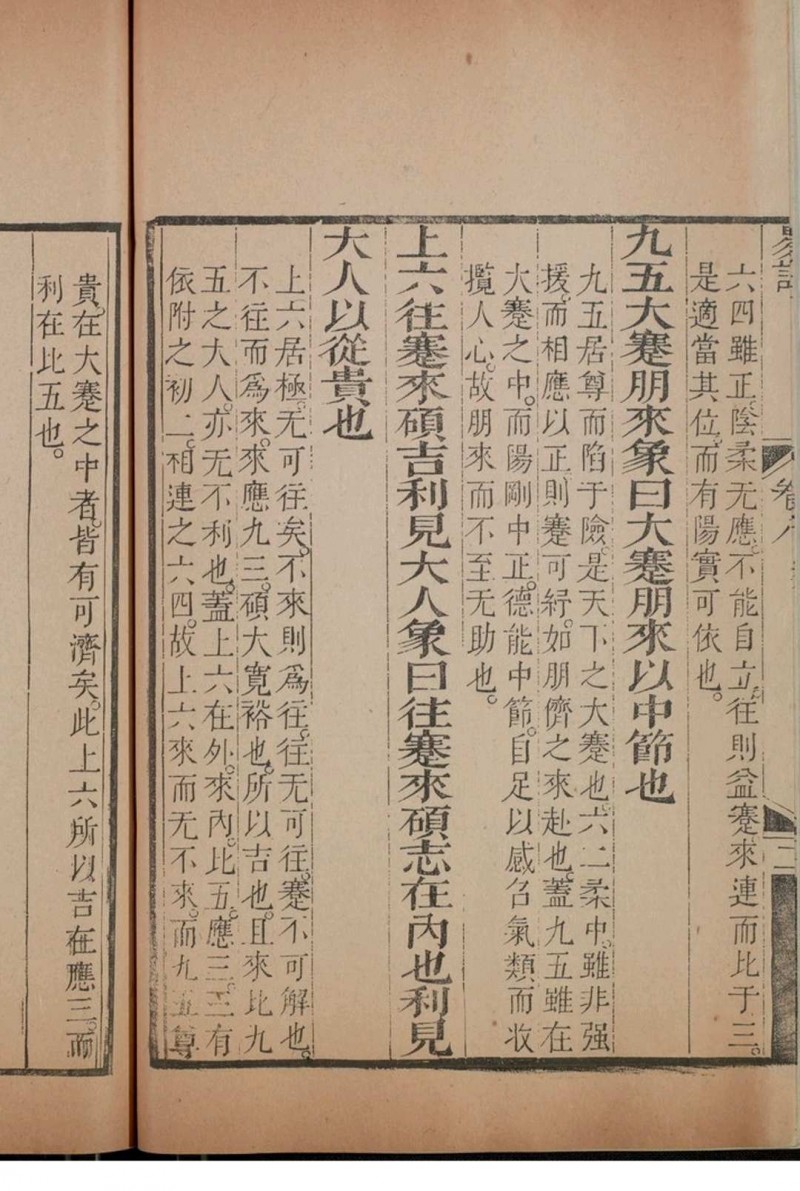 六四雖正陰柔无應。不能自立。往則益蹇來連而比于三。
是適當其位。而有陽實可依也。
九五大蹇朋來象曰大蹇朋來以中節也
九五居尊而陷于險。是天下之大蹇也。六二柔中。雖非强
援。而相應以正。則蹇可紓。如朋儕之來赴也。蓋九五雖在
大蹇之中。而陽剛中正。德能中節。自足以感召氣類而收
攬人心。故朋來而不至无助也。
上六往蹇來碩吉利見大人象曰往蹇來碩志在內也利見
大人以從貴也
上六居極。无可往矣。不來則爲往。往无可往。蹇不可解也。
不往而爲來。來應九三。碩大寬裕也。所以吉也。且來比九
五之大人。亦无不利也。蓋上六在外。來內。比五。應三。三有
依附之初二。相連之六四。故上六來而无不來。而九五尊
貴。在大蹇之中者。皆有可濟矣。此上六所以吉在應三。而
利在比五也。